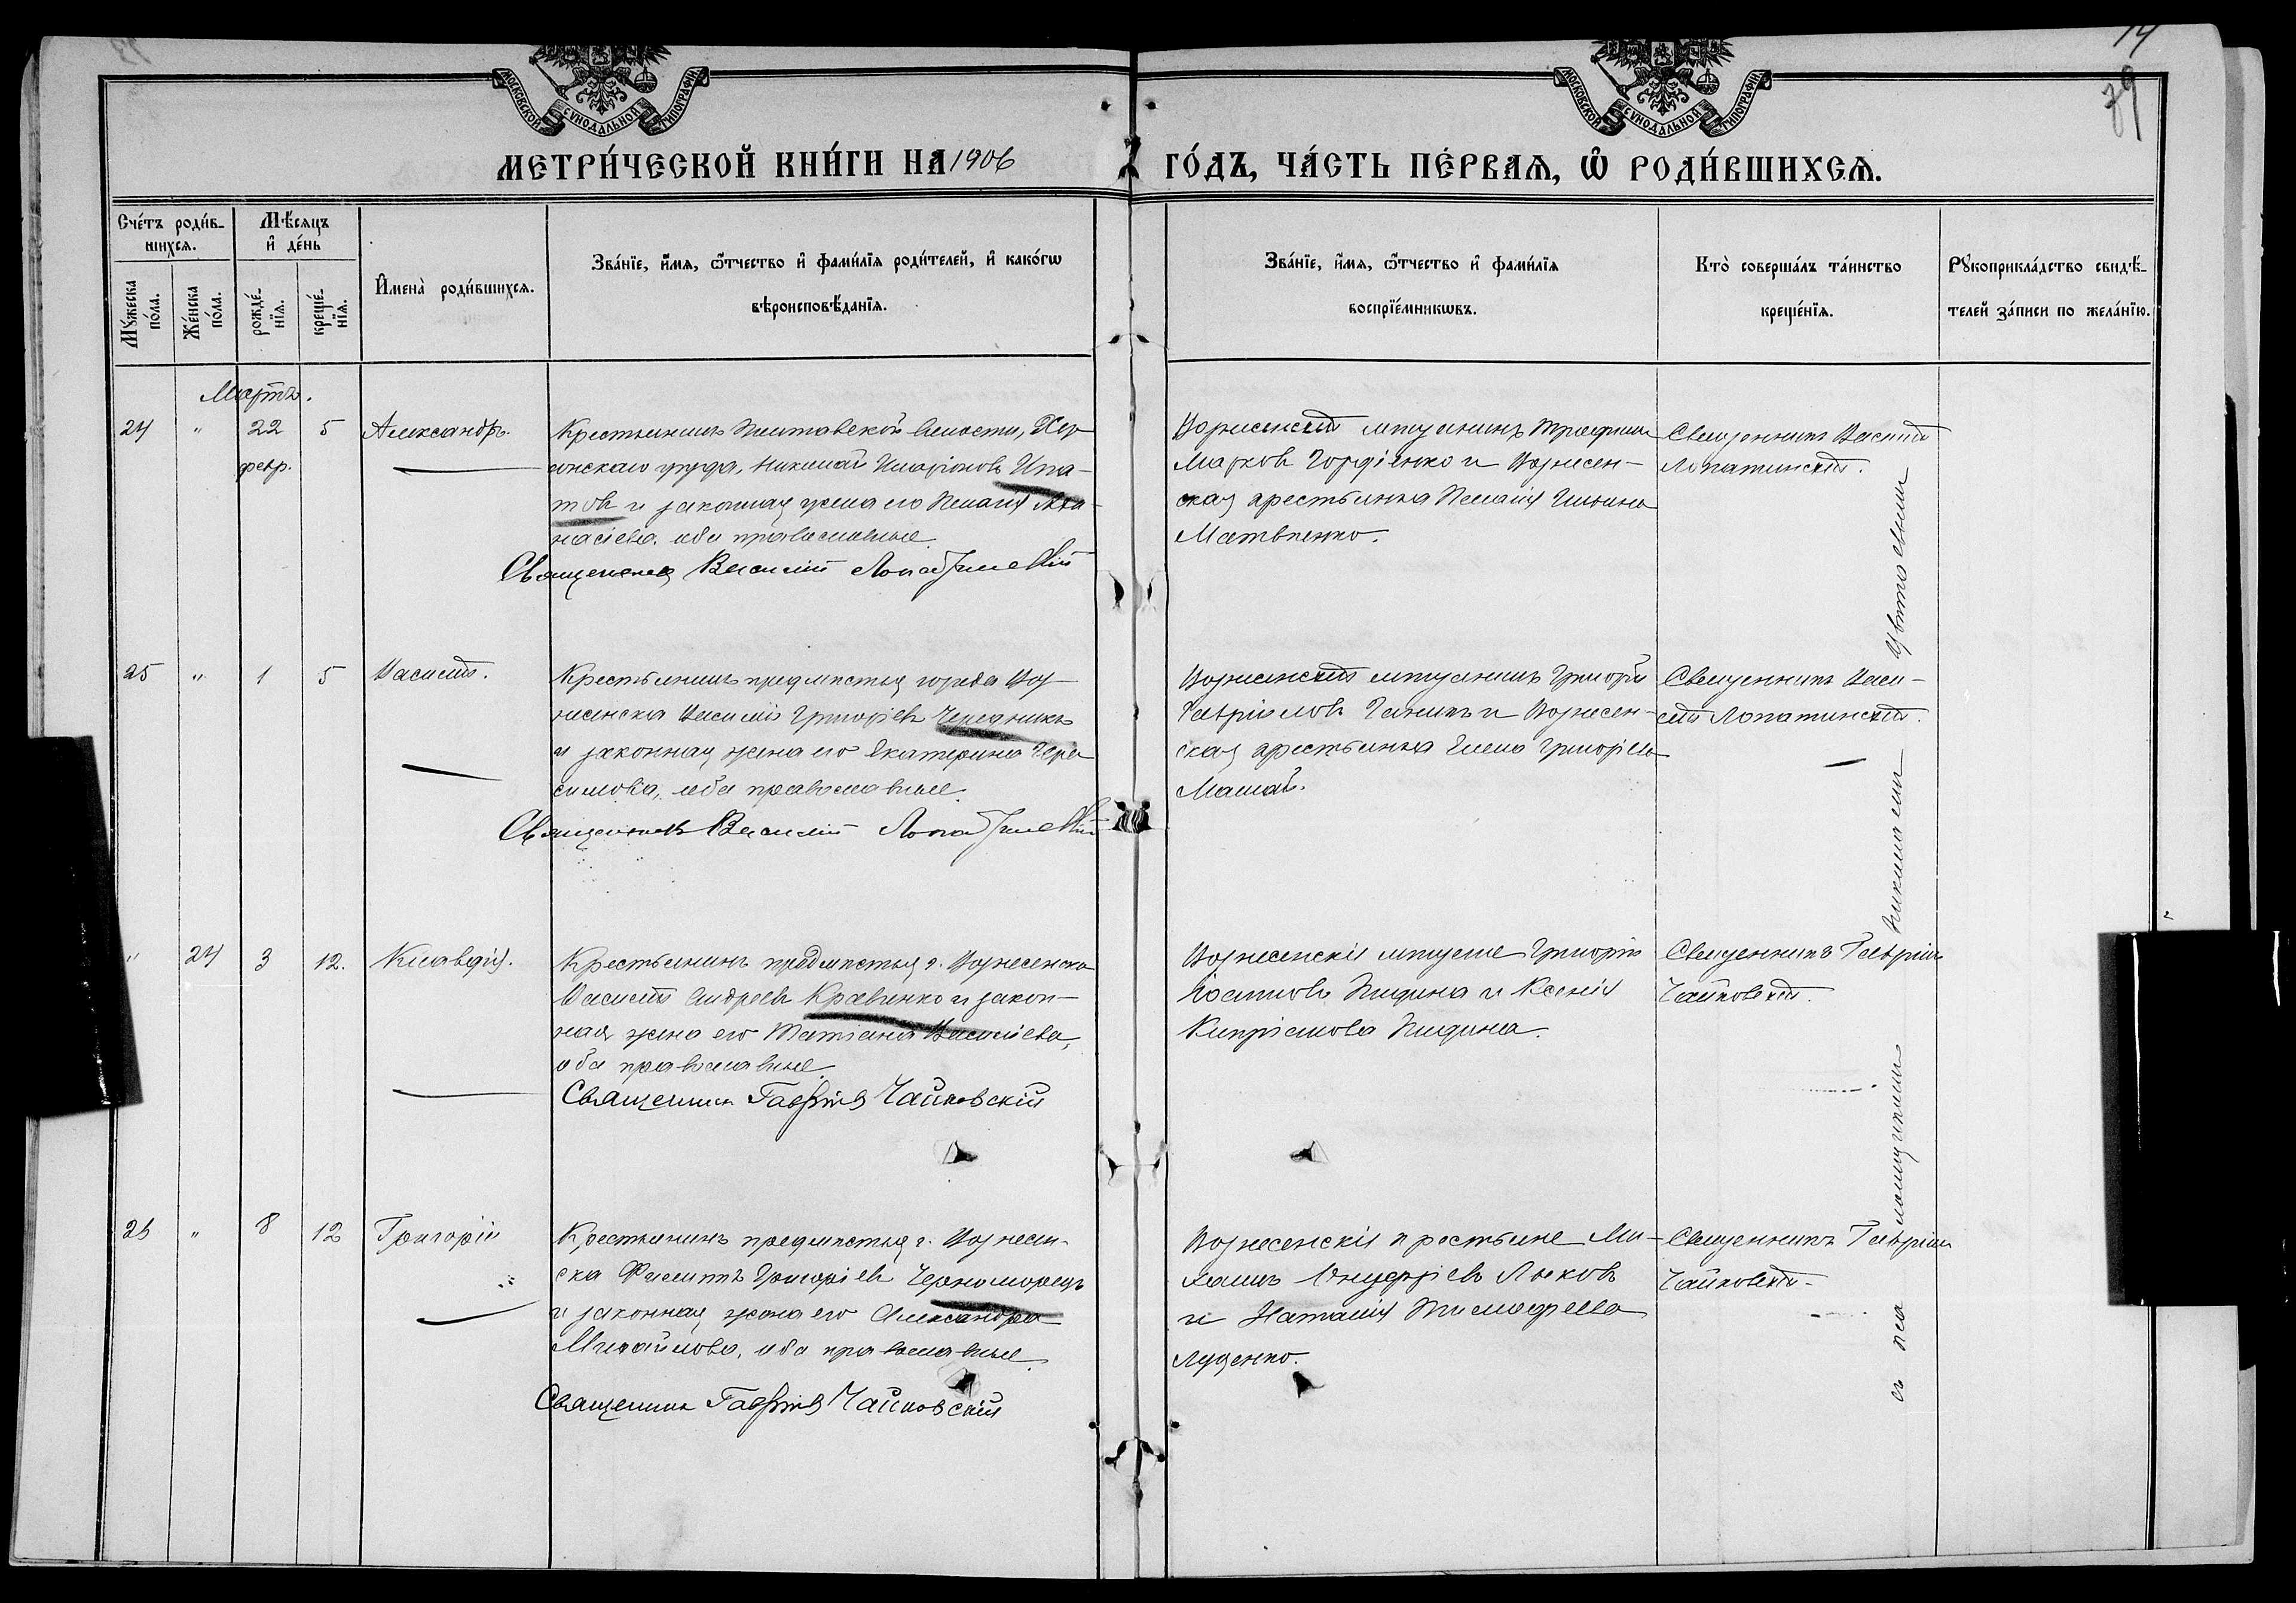 14
79
МОСКОВСКОЙ СѴНОДАЛЬНОЙ ТИПОГРАФІИ
МОСКОВСКОЙ СѴНОДАЛЬНОЙ ТИПОГРАФІИ
МЕТРИ́ЧЕСКОЙ КНИ́ГИ НА 1906 ГО́ДЪ, ЧА́СТЬ ПЕ́РВАѦ, Ѡ҆ РОДИ́ВШИХСѦ.
Сче́тъ роди́в-
шихсѧ.
Мꙋ́жеска по́ла.
Же́нска по́ла.
Мѣ́сѧцъ
и҆ де́нь
рожде́-
нїѧ.
креще́-
нїѧ.
И҆мена̀ роди́вшихсѧ.
Зва́нїе, и҆́мѧ, ѻ҆́тчество и҆ фами́лїѧ роди́телей, и҆ како́гѡ
вѣроисповѣ́данїѧ.
Зва́нїе, и҆́мѧ, ѻ҆́тчество и҆ фами́лїѧ
воспрїе́мникѡвъ.
Кто̀ соверша́лъ та́инство
креще́нїѧ.
Рꙋкоприкла́дство свидѣ́-
телей за́писи по жела́нїю.
Мартъ.
24 " 22 5 Александръ.
февр.
Крестьянинъ волости, Хер-
сонскаго уѣзда, Николай Иларіоновъ Ипа-
товъ и законная жена его Пелагія Аѳа-
насіева, оба православные.
Священникъ Василій Лопатинскій
Вознесенскій мѣщанинъ Трофимъ
Марковъ Гордіенко и Вознесен-
ская крестьянка Пелагія Ильина
Матвѣенко.
Священникъ Василій
Лопатинскій.
25 " 1 5 Василій.
Крестьянинъ предмѣстья города Воз-
несенска Василій Григоріевъ
и законная жена его Екатерина Гера-
симова, оба православные.
Священникъ Василій Лопатинскій
Вознесенскій мѣщанинъ Григорій
Гавріиловъ Ганинъ и Вознесен-
ская крестьянка Елена Григорьева
Мамай.
Священникъ Васи-
лій Лопатинскій.
" 24 3 12. Клавдія.
Крестьянинъ предмѣстья г. Вознесенска
Василій Андреевъ Кравченко и закон-
ная жена его Татіана Василіева,
оба православные.
Священникъ Гавріилъ Чайковскій
Вознесенскіе мѣщане Григорій
Іосифовъ и Ксенія
Кипріанова
Священникъ Гавріилъ
Чайковскій.
26 " 8 12 Григорій
Крестьянинъ предмѣстья г. Вознесен-
ска Филиппъ Григоріевъ Черноморецъ
и законная жена его Александра
Михайлова, оба православные.
Священникъ Гавріилъ Чайковскій
Вознесенскіе крестьяне Ми-
хаилъ Онуфріевъ Лысковъ
и Наталія Тимофеева
Луценко.
Священникъ Гавріилъ
Чайковскій.
съ псаломщикомъ Николаемъ